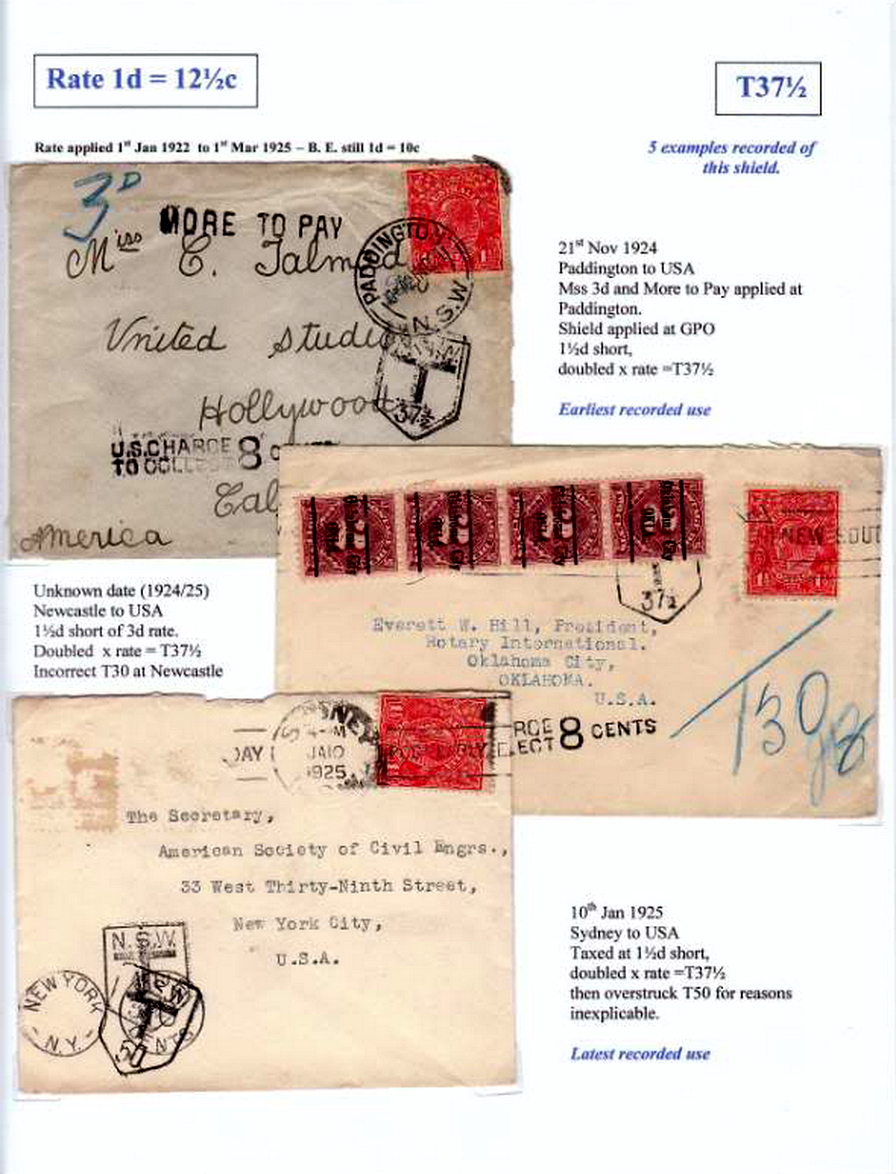 Rate 1d = 12½c
T37½
Rate applied 1st Jan 1922 to 1st Mar 1925 – B. E. still 1d = 10c
5 examples recorded of
this shield.
3D
MORE TO PAY
Miss C. Talmad
PADDINGTON
N.S.W
United Studio
T
37½
Hollywood
U.S. CHARGE
TO COLLECT 8
Cal
America
21st Nov 1924
Paddington to USA
Mss 3d and More to Pay applied at
Paddington.
Shield applied at GPO
1½d short,
doubled x rate =T37½
Earliest recorded use
NEW SOUT
37½
Everett W. Hill, President,
Rotary International.
Oklahoma City,
OKLAHOMA.
U.S.A.
T30
RGE
LECT 8 CENTS
Unknown date (1924/25)
Newcastle to USA
1½d short of 3d rate.
Doubled x rate = T37½
Incorrect T30 at Newcastle
SYDNEY
DAY
JA10
1925
The Secretary,
American Society of Civil Engrs.,
33 West Thirty-Ninth Street,
New York City,
U.S.A.
N.S.W.
T
50
NEW YORK
N.Y.
10th Jan 1925
Sydney to USA
Taxed at 1½d short,
doubled x rate =T37½
then overstruck T50 for reasons
inexplicable.
Latest recorded use